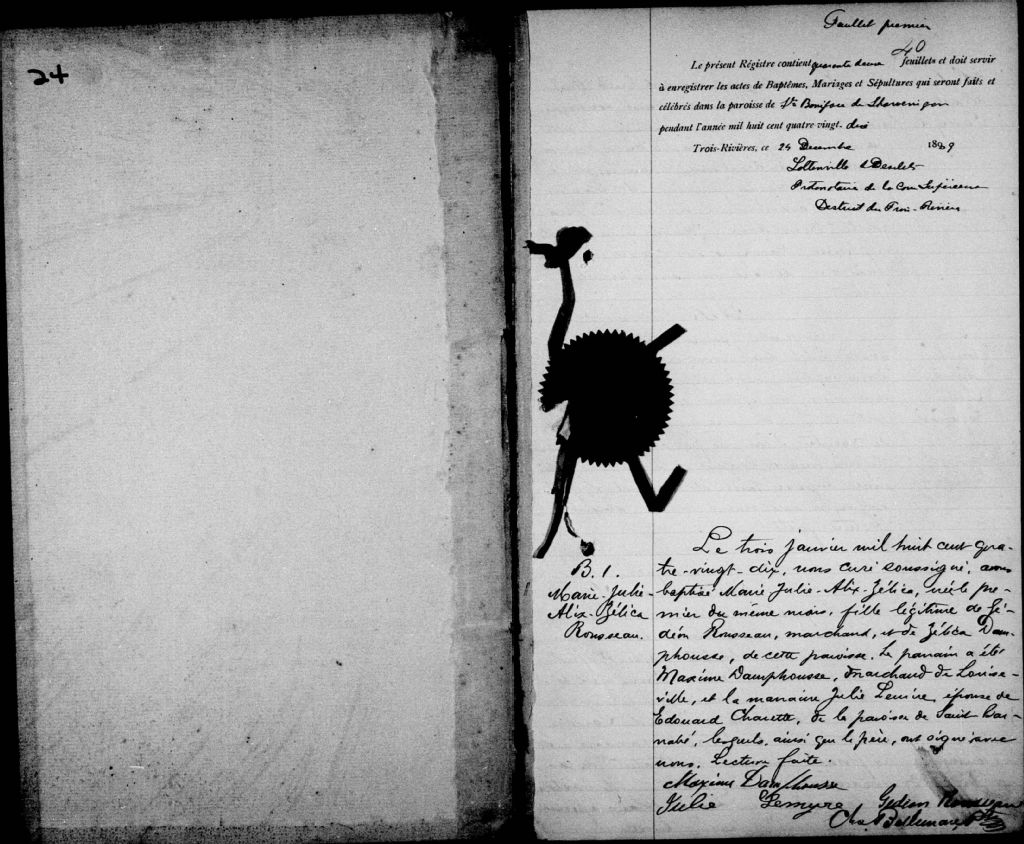 24
Feuillet premier
40
Le présent Régistre contient quarante deux feuillets et doit servir
à enregistrer les actes de Baptêmes, Mariages et Sépultures qui seront faits et
célébrés dans la paroisse de St Boniface de Shawenigan
pendant l'année mil huit cent quatre vingt-dix
Trois-Rivières, ce 24 Decembre 1889
& Desilets
Protonotaire de la Cour Supérieure
District des Trois-Rivières
B. 1.
Marie-Julie-
Alix-Zélica
Rousseau.
Le trois janvier mil huit cent qua-
tre-vingt-dix, nous curé soussigné, avons
baptisé Marie Julie-Alix-Zélica, née le pre-
mier du même mois, fille légitime de Gé-
déon Rousseau, marchand, et de Zélica Dam-
phousse, de cette paroisse. Le parrain a été
Maxime Damphousse, marchand de Louise-
ville, et la marraine Julie Lemire, épouse de
Edouard Charette, de la paroisse de Saint Bar-
nabé, lesquels, ainsi que le père, ont signé avec
nous. Lecture faite.
Maxime Damphousse
Julie Lemyre, Gédéon Rousseau
Chs. Bellemare, Ptre